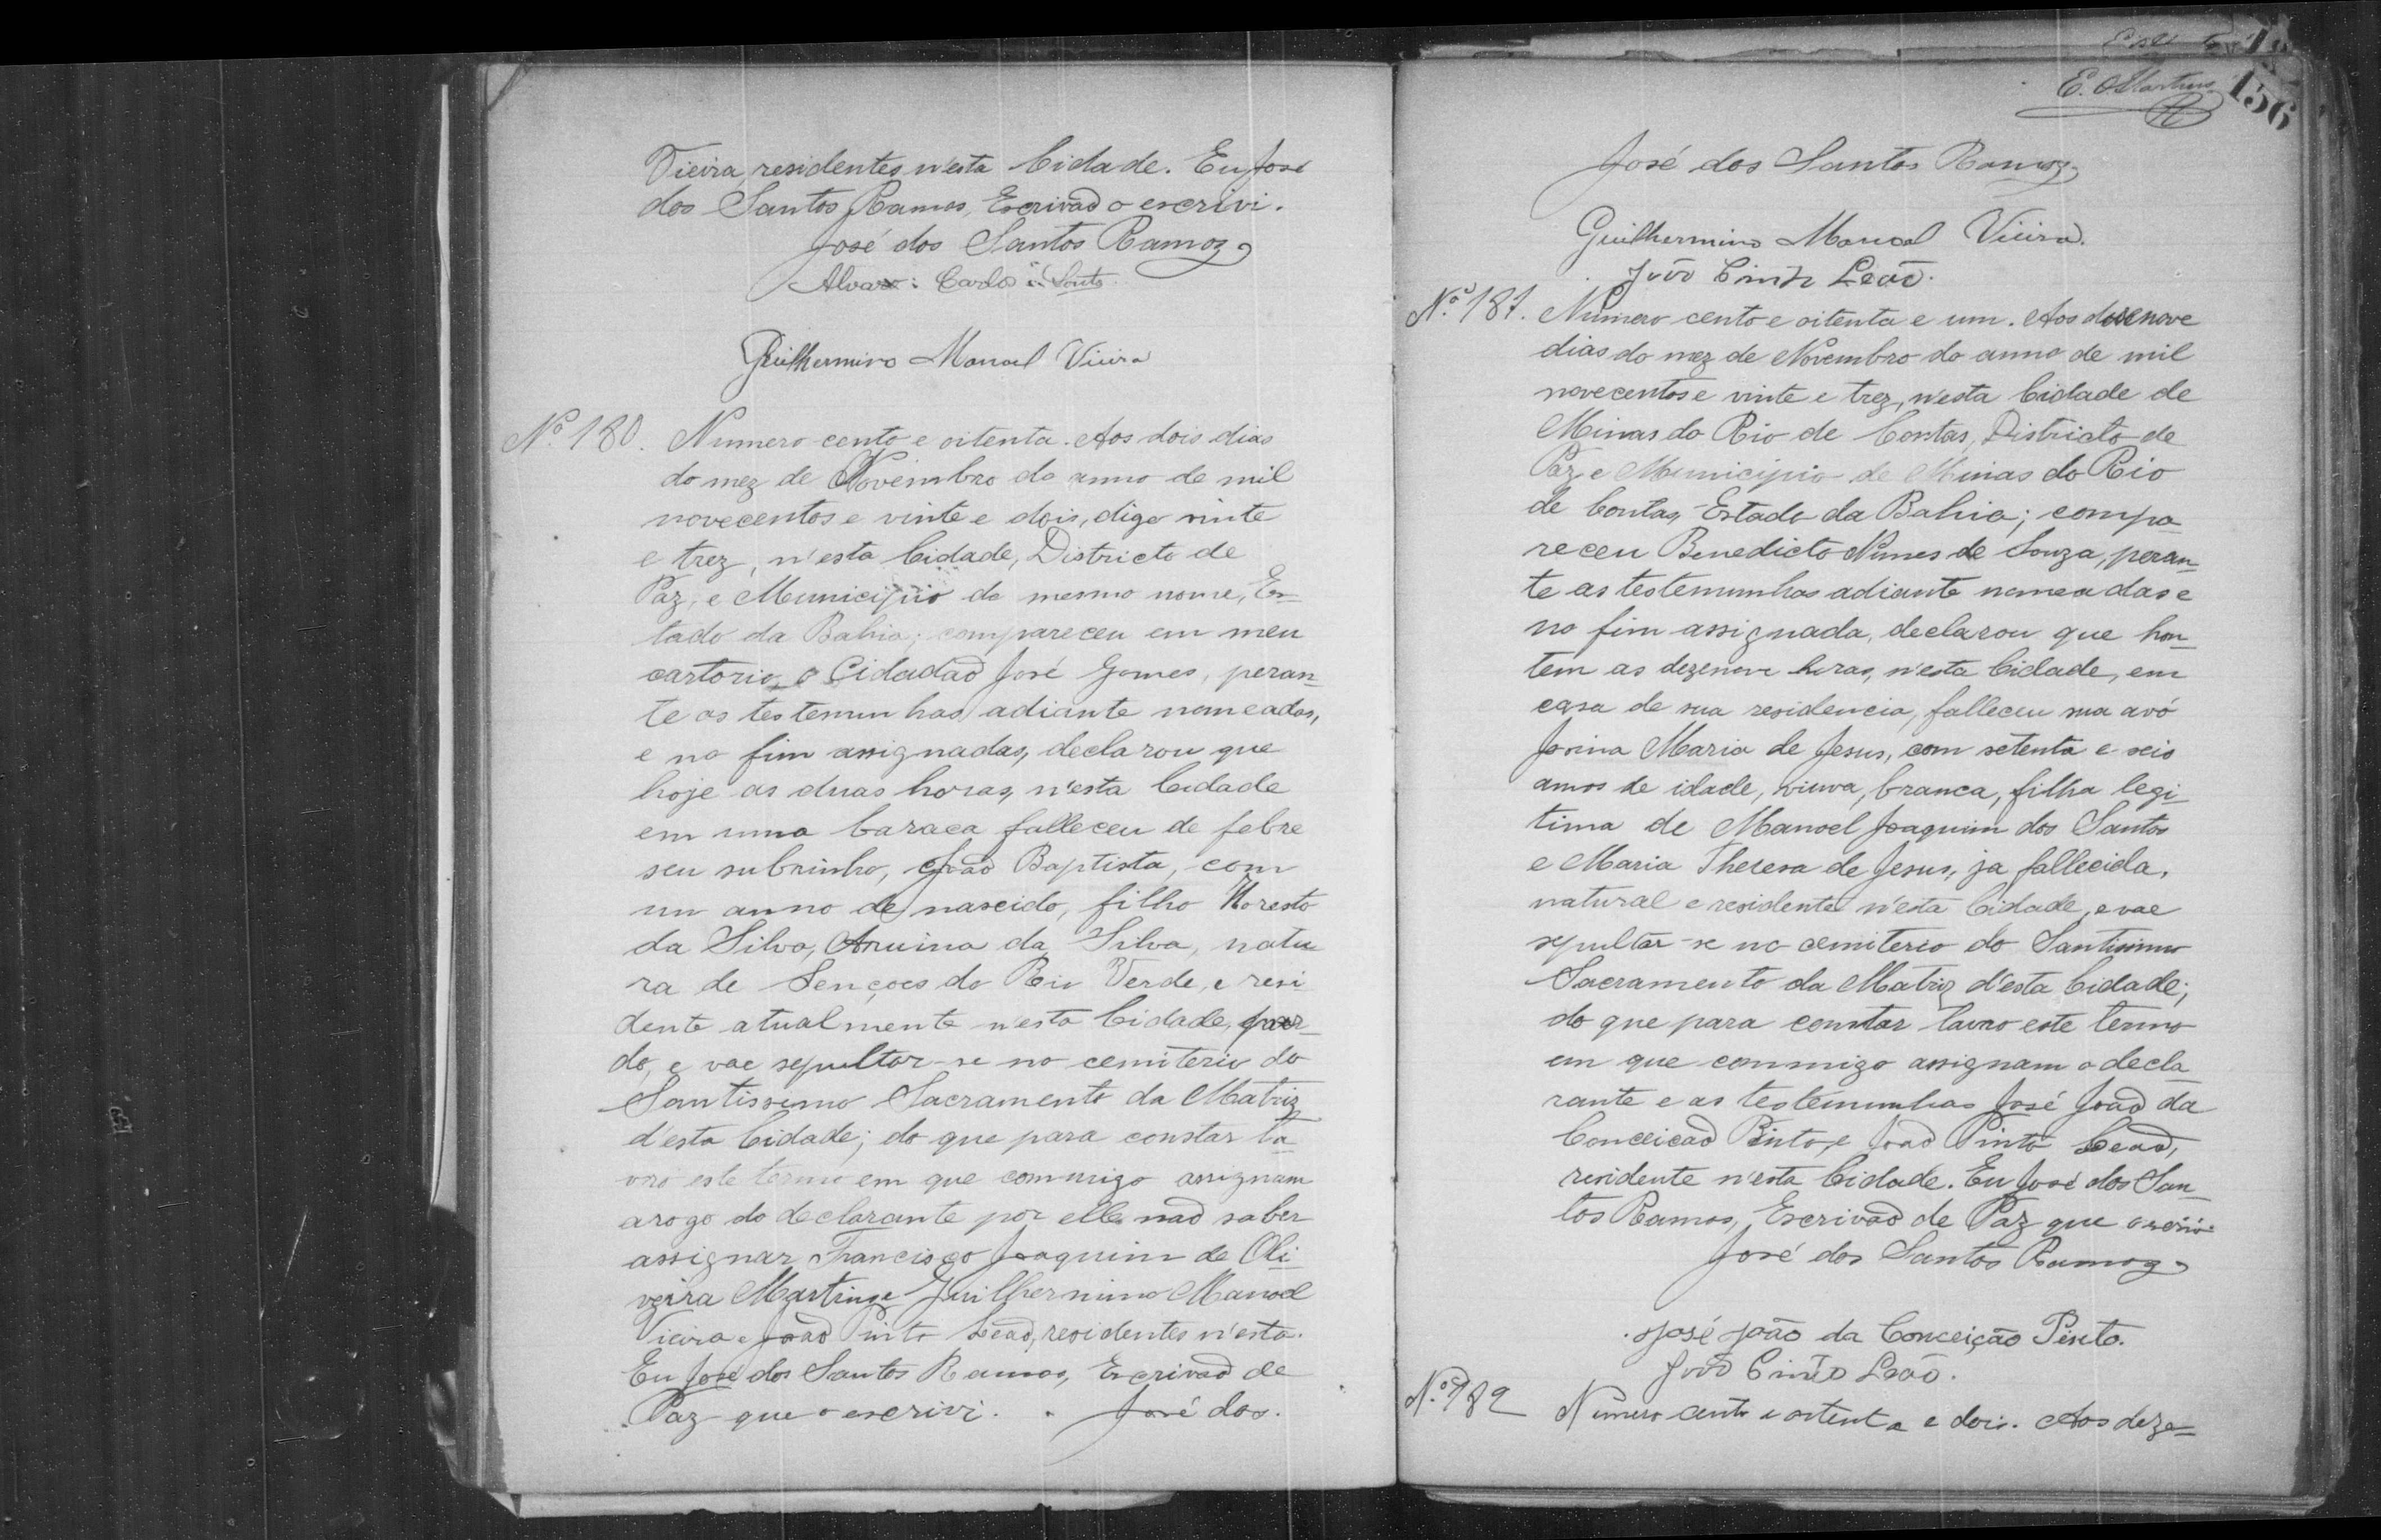 Vieira, residentes n'esta Cidade. Eu José
dos Santos Ramos, Escrivaõ o escrivi.
José dos Santos Ramoz
Alvaro: Carlos Souto
Guilhermino Manoel Vieira
Nº 180. Numero cento e oitenta. Aos dois dias
do mez de Novembro do anno de mil
novecentos e vinte e dois, digo vinte
e trez, n'esta Cidade, Districto de
Paz, e Municipio do mesmo nome, Es-
tado da Bahia; compareceu em meu
cartorio, o Cidadaõ José Gomes, peran-
te as testemunhas adiante nomeadas,
e no fim assignadas, declarou que
hoje as duas horas, n'esta Cidade
em uma baraca falleceu de febre
seu subrinho, Joaõ Baptista, com
um anno de nascido, filho
da Silva, da Silva, natu
ra de do Rio Verde, e resi
dente atualmente n'esta Cidade, par-
do, e vae sepultar-se no cemiterio do
Santissimo Sacramento da Matriz
d'esta Cidade; do que para constar la
vro este termo em que commigo assignam
arogo do declarante por elle naõ saber
assignar Francisco Joaquim de Oli-
veira Martins e Guilhermino Manoel
Vieira e Joaõ Pinto Leaõ, residentes n'esta.
Eu José dos Santos Ramos, Escrivaõ de
Paz que o escrivi. José dos.
E. Martins
156
José dos Santos Ramoz
Guilhermino Manoel Vieira.
João Pinto Leão.
Nº 181. Numero cento e oitenta e um. Aos dezenove
dias do mez de Novembro do anno de mil
novecentos e vinte e trez, n'esta Cidade de
Minas do Rio de Contas, Districto de
Paz e Municipio de Minas do Rio
de Contas, Estado da Bahia; compa
receu Benedicto Nunes de Souza, peran-
te as testemunhas adiante nomeadas e
no fim assignada, declarou que hon-
tem as dezenove horas, n'esta Cidade, em
casa de sua residencia, falleceu sua avó
Maria de Jesus, com setenta e seis
annos de idade, viuva, branca, filha legi-
tima de Manoel Joaquim dos Santos
e Maria Theresa de Jesus, ja fallecida,
natural e residente n'esta Cidade, e vae
sepultar-se no cemiterio do Santissimo
Sacramento da Matriz d'esta Cidade;
do que para constar lavro este termo
em que commigo assignam o decla-
rante e as testemunhas José Joaõ da
Conceicaõ Pinto, e Joaõ Pinto Leaõ,
residente n'esta Cidade. Eu José dos San-
tos Ramos, Escrivaõ de Paz que o escrivi.
José dos Santos Ramoz
José João da Conceição Pinto.
João Pinto Leão.
Nº 182 Numero cento e oitenta e dois. Aos deze-